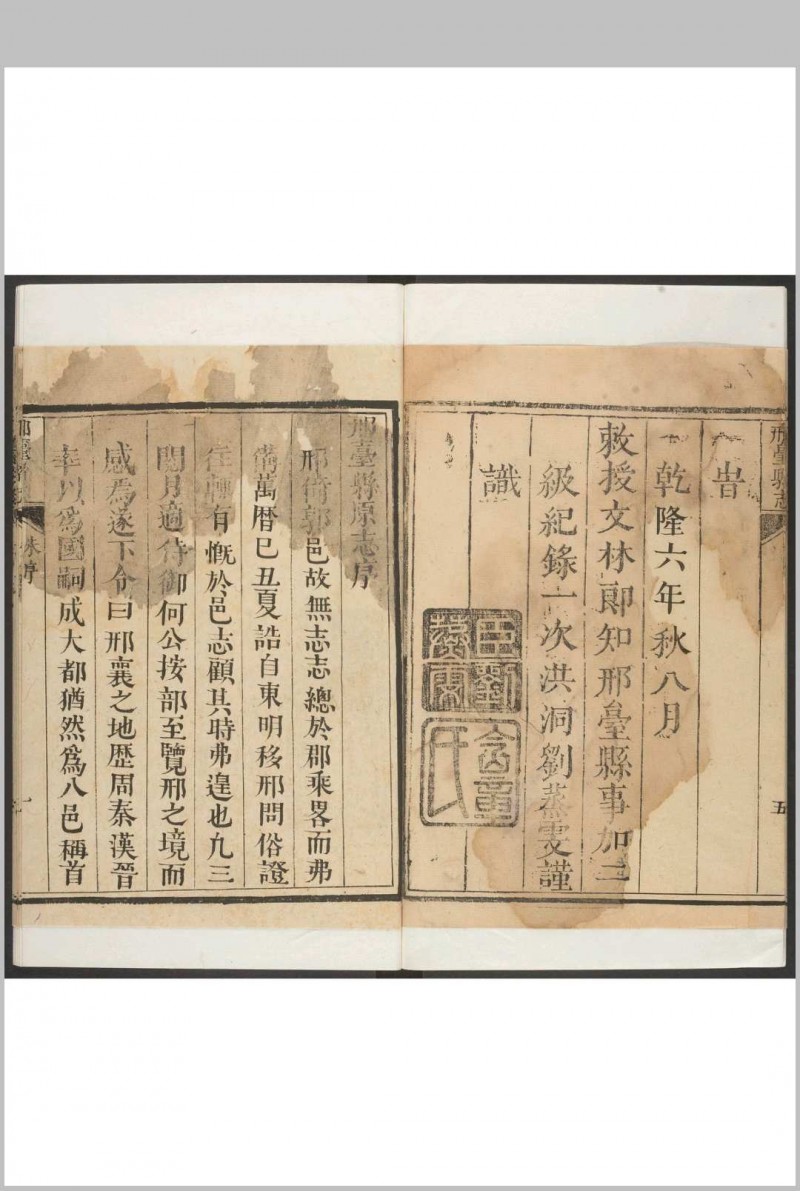 邢臺縣志
五
旹
乾隆六年秋八月
敕授文林郎知邢臺縣事加三
級紀錄一次洪洞劉蒸雯謹
識
邢臺縣原志序
邢倚郭邑故無志志總於郡乘畧而弗
備萬曆巳丑夏誥自東明移邢問俗證
往輙有慨於邑志顧其時弗遑也九三
閱月適侍御何公按部至覽邢之境而
感為遂下令曰邢襄之地歷周秦漢晉
幸以爲國嗣成大都猶然爲八邑稱首
朱序
一